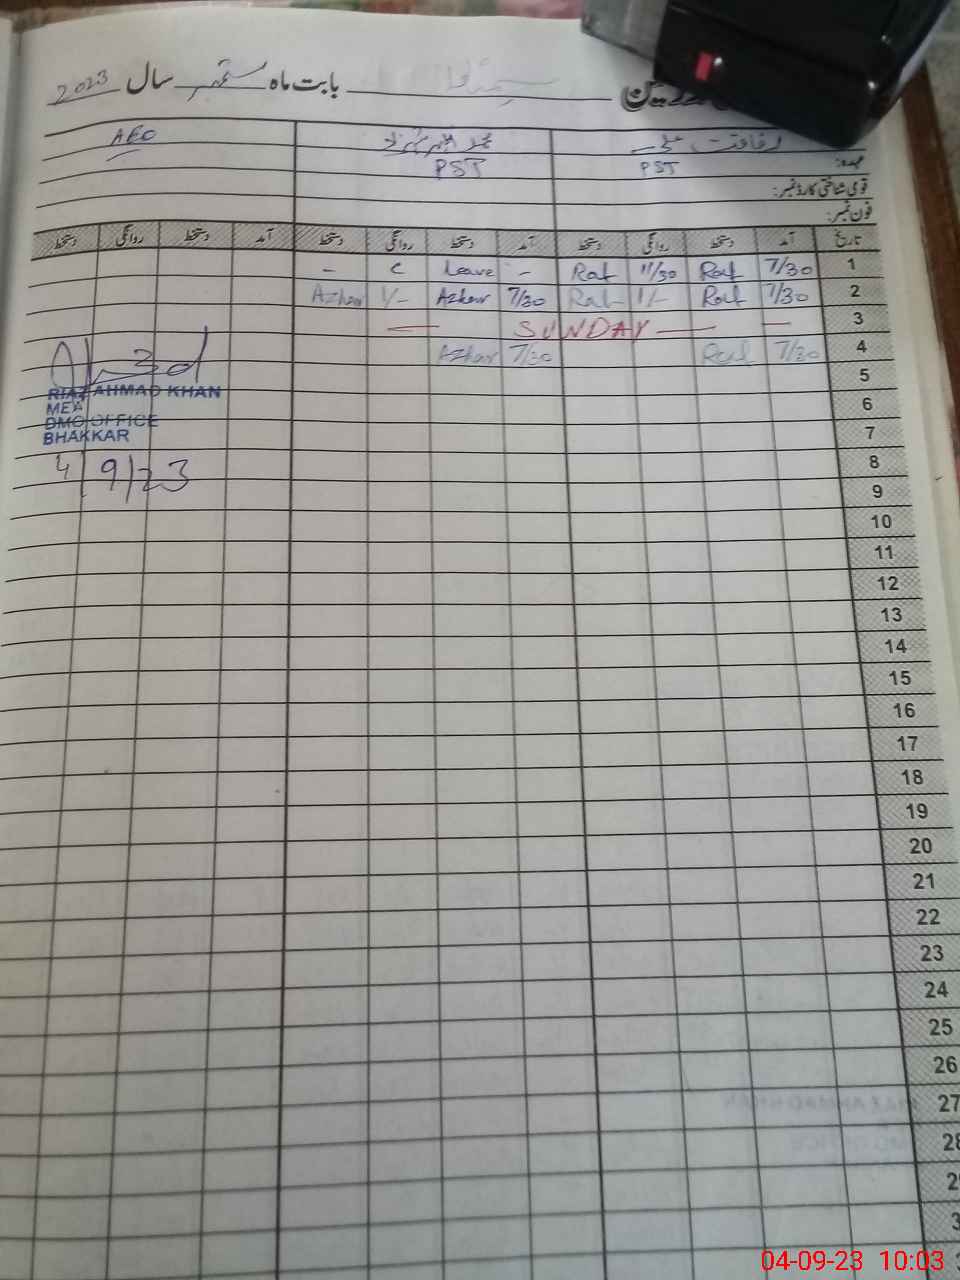 بابت ماہ ستمبر سال 2023
رفاقت علی محمد اظہر AEO
عہدہ: PST PST
قومی شناختی کارڈ نمبر:
فون نمبر:
تاریخ آمد دستخط روانگی دستخط آمد دستخط روانگی دستخط آمد دستخط روانگی دستخط
1 7/30 Raf 11/30 Raf - Leave C -
2 7/30 Raf 1/- Raf 7/30 Azhar 1/- Azhar
3 — SUNDAY — —
4 7/30 Raf 7/30 Azhar
5
RIAZ AHMAD KHAN
6
MEA
DMO OFFICE
7
BHAKKAR
8
4/9/23
9
10
11
12
13
14
15
16
17
18
19
20
21
22
23
24
25
26
27
28
04-09-23 10:03